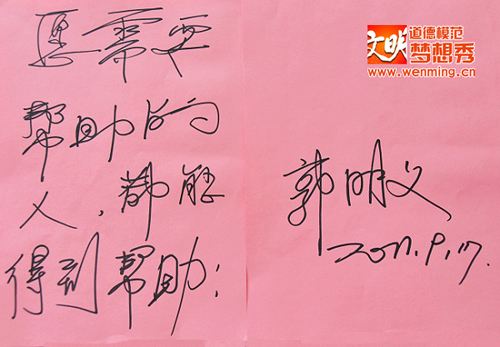 愿需要
帮助的
人,都能
得到帮助!
郭明义
2011.9.17.
文明
道德模范
梦想秀
www.wenming.cn